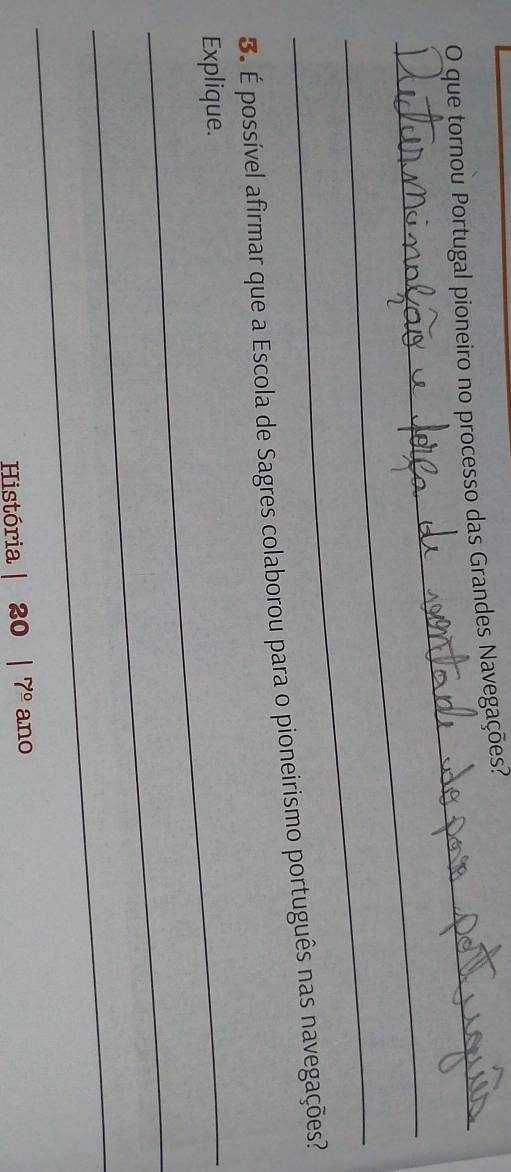 O que tornou Portugal pioneiro no processo das Grandes Navegações?
Determinação e força de vontade do povo português
3. É possível afirmar que a Escola de Sagres colaborou para o pioneirismo português nas navegações?
Explique.
História | 20 | 7º ano